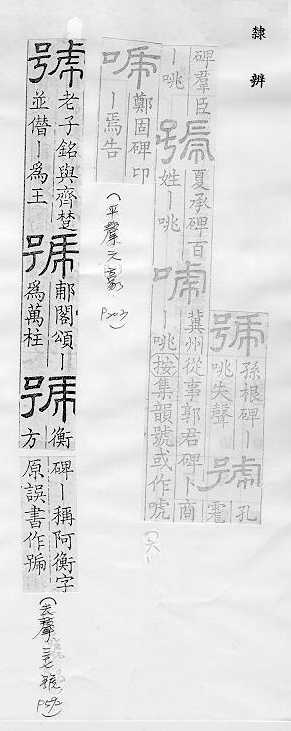 隸辨
號
孫根碑丨
咷失聲
號
孔
碑羣臣
丨咷
號
夏承碑百
姓丨咷
唬
冀州從事郭君碑卜商
丨咷按集韻號或作唬
唬
鄭固碑印
丨焉告
(平聲六豪 P203)
號
老子銘與齊楚
並僭丨爲王
號
郙閣頌丨
爲萬柱
號
衡
方
碑丨稱阿衡字
原誤書作號